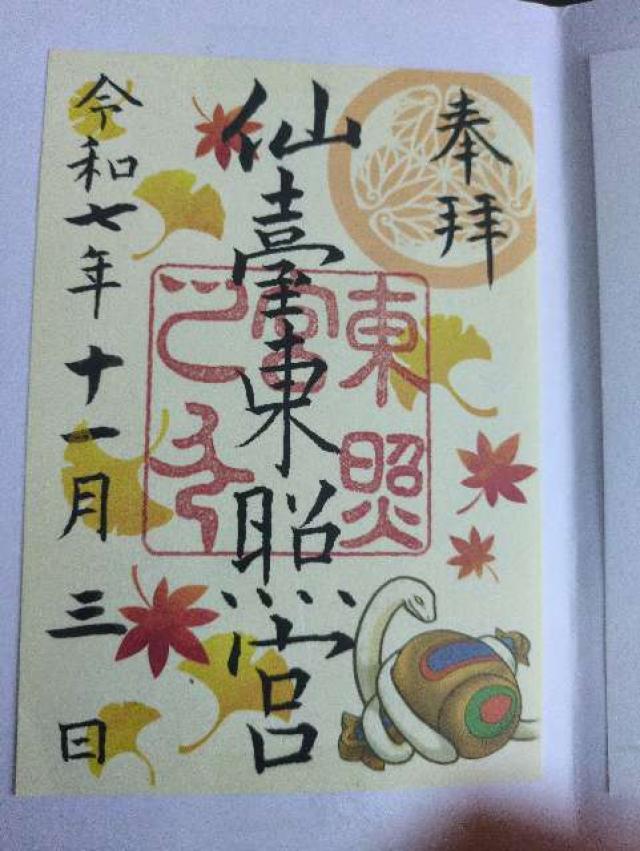 奉拝
仙臺東照宮
令和七年十一月三日
東照
宮